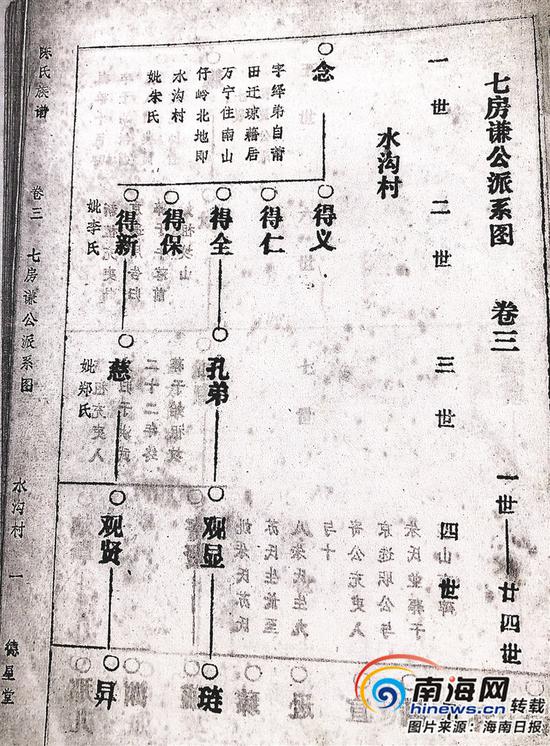 七房谦公派系图 卷三 一世——廿四世
水沟村
一世 二世 三世 四世
念
字绎弟自莆
田迁琼籍居
万宁住南山
仔岭北地即
水沟村
妣朱氏
得义
得仁
得全
得保
得新
妣李氏
孔弟
慈
妣郑氏
观显
观贤
琏
昇
陈氏族谱 卷三 七房谦公派系图 水沟村 一 德星堂
南海网
hinews.cn 转载
图片来源:海南日报